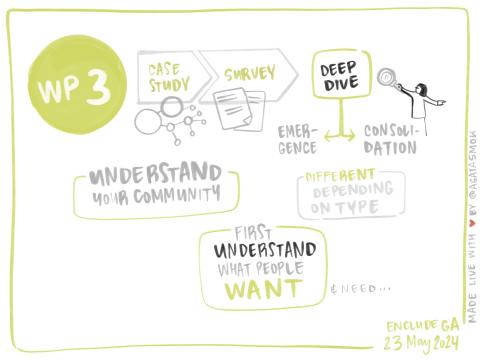 WP 3
CASE
STUDY
SURVEY
DEEP
DIVE
EMER-
GENCE
CONSOLI-
DATION
UNDERSTAND
YOUR COMMUNITY
DIFFERENT
DEPENDING
ON TYPE
FIRST
UNDERSTAND
WHAT PEOPLE
WANT
& NEED...
ENCLUDE GA
23 May 2024
MADE LIVE WITH ♥ BY @AGATASMOK